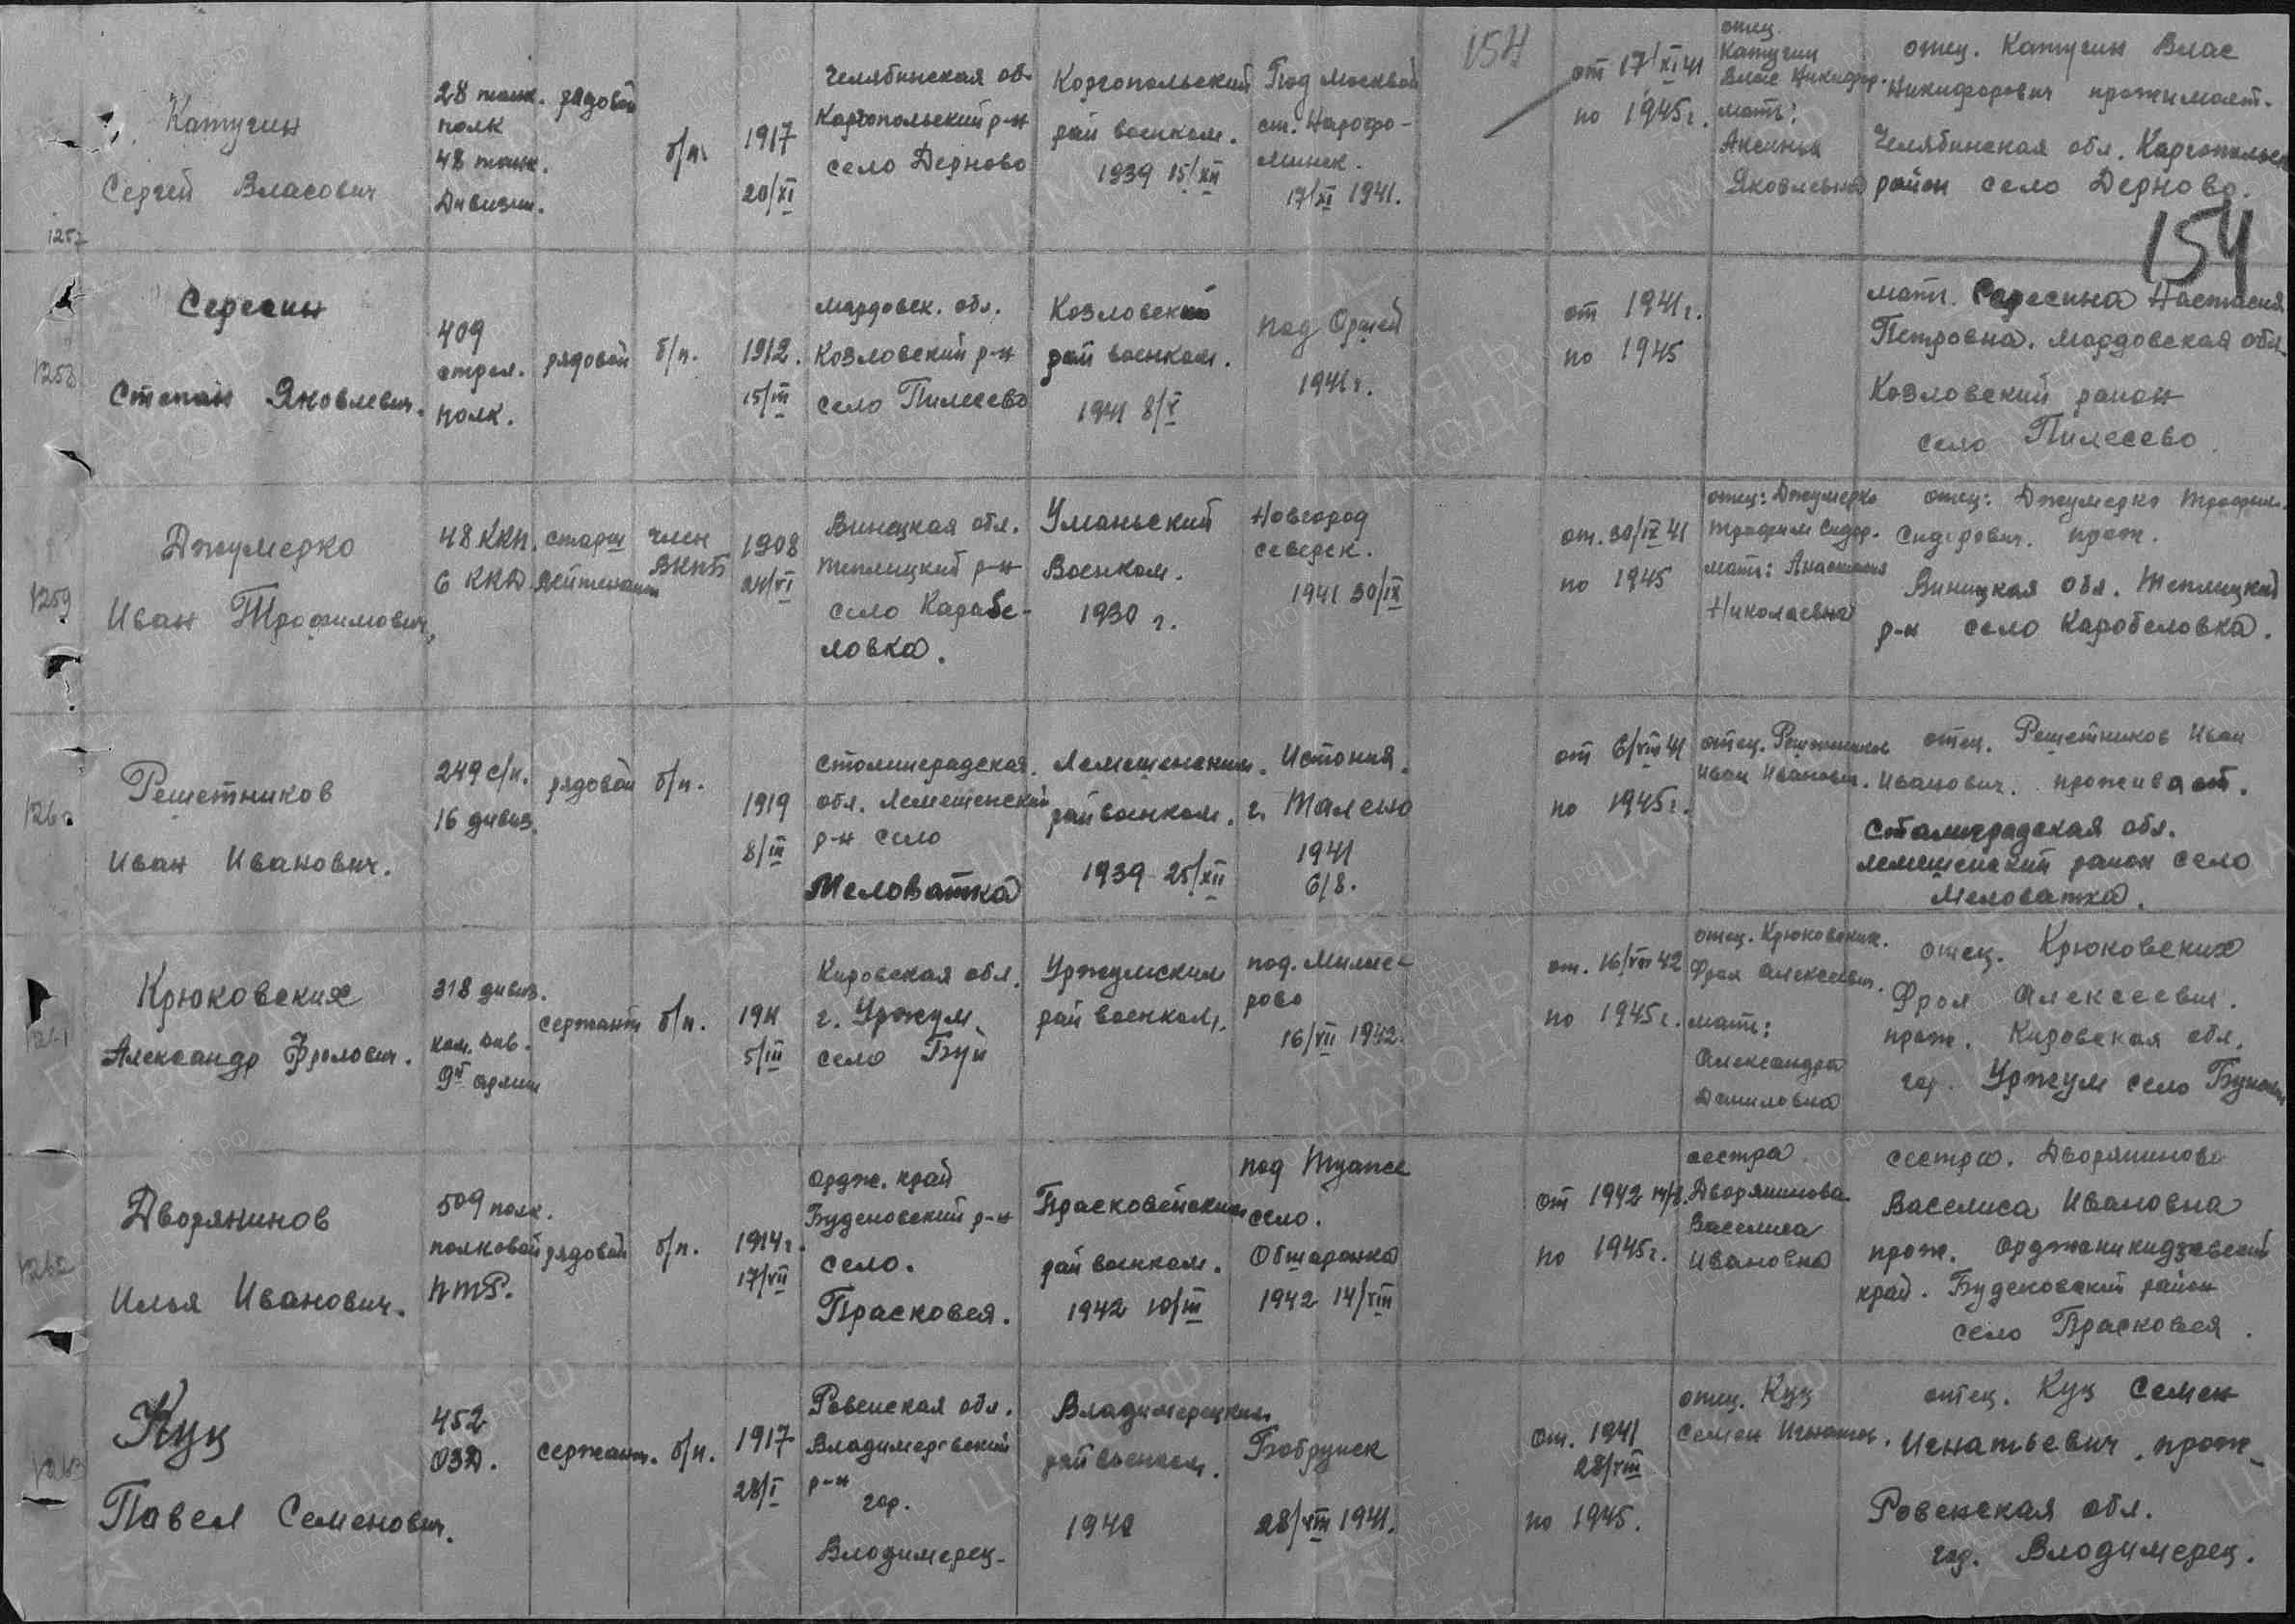 154
154
1257
Катугин
Сергей Власович
28 танк.
полк
48 танк.
Дивизии.
рядовой
б/п.
1917
20/XI
Челябинская об.
Каргопольский р-н
село Дерново
Коргопольский
рай военком.
1939 15/XII
Под Москвой
ст. Нарофо-
минск.
17/XI 1941.
от 17/XI 41
по 1945г.
отец.
Катугин
Влас Никифор.
мать:
Аксинья
Яковлевна
отец. Катугин Влас
Никифорович проживает.
Челябинская обл. Каргопольск
район село Дерново.
1258
Сересин
Степан Яковлевич.
409
стрел.
полк.
рядовой
б/п.
1912.
15/III
Мордовск. обл.
Козловский р-н
село Пилесево
Козловский
рай военком.
1941 8/X
под Оршей
1941г.
от 1941г.
по 1945
мать. Сересина Настасия
Петровна. Мордовская обл.
Козловский район
село Пилесево.
1259
Джумерко
Иван Трофимович,
48 ККП.
6 ККД
старш
лейтенант
член
ВКПБ
1908
24/VI
Виницкая обл.
Теплицкий р-н
село Карабе-
ловка.
Уманьский
Военком.
1930 г.
Новгород
северск.
1941 30/IX
от. 30/IX 41
по 1945
отец: Джумерко
Трофим Сидор.
мать: Анастасия
Николаевна
отец: Джумерко Трофим.
Сидорович. прож.
Виницкая обл. Теплицкий
р-н село Каробеловка.
1260
Решетников
Иван Иванович.
249 с/п.
16 дивиз.
рядовой
б/п.
1919
8/III
Столинградская.
обл. Лемешенский
р-н село
Меловатка
Лемешенским.
рай военком.
1939 25/XII
Истония.
г. Талено
1941
6/8.
от 6/VIII 41
по 1945г.
отец. Решетников
Иван Иванович.
отец. Решетников Иван
Иванович. проживает.
Сталинградская обл.
лемешенский район село
Меловатка.
1261
Крюковских
Александр Фролович.
318 дивиз.
9й армии
сержант
б/п.
1911
5/III
Кировская обл.
г. Уржум.
село Буй
Уржумским
рай военком.
под. Милле-
рово
16/VII 1942.
от. 16/VII 42
по 1945г.
отец. Крюковских.
Фрол Алексеевич.
мать:
Александра
Даниловна
отец. Крюковских
Фрол Алексеевич.
прож. Кировская обл.
гор. Уржум село
1262
Дворянинов
Илья Иванович.
509 полк.
полковой
ПТР.
рядовой
б/п.
1914г.
17/VII
Ордж. край
Буденовский р-н
село.
Прасковея.
Прасковейским
рай военком.
1942 10/III
под Туапсе
село.
Обшаронка
1942 14/VIII
от 1942 14/8.
по 1945г.
сестра.
Дворянинова
Васелиса
Ивановна
сестра. Дворянинова
Васелиса Ивановна
прож. Орджаникидзевский
край. Буденовский район
село Прасковея.
1263
Куц
Павел Семенович.
452
ОЗД.
сержант.
б/п.
1917
28/I
Ровенская обл.
Владимерский
р-н
гор.
Владимерец.
Владимерецким
рай военком.
1940
Бобруиск
28/VIII 1941.
от. 1941
28/VIII
по 1945.
отец. Куц
Семен Игнатов.
отец. Куц Семен
Игнатьевич. прож.
Ровенская обл.
гор. Влодимерец.